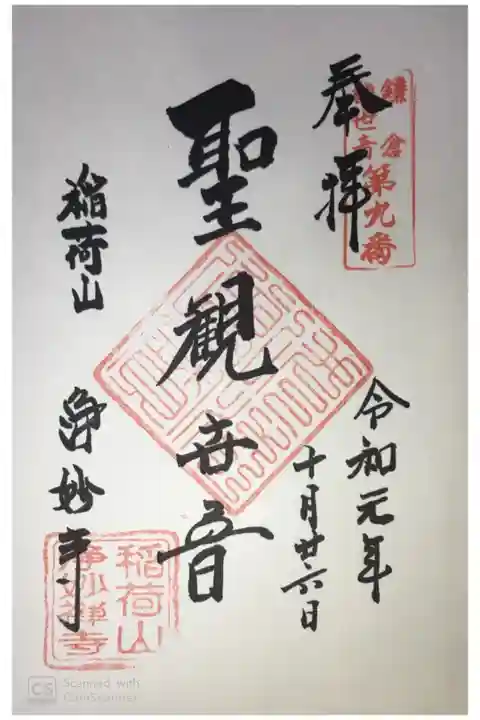 奉拝
鎌倉
観世音
第九番
令和元年
十月廿六日
聖観世音
稲荷山
浄妙寺
稲荷山
浄妙禅寺
CS Scanned with
CamScanner